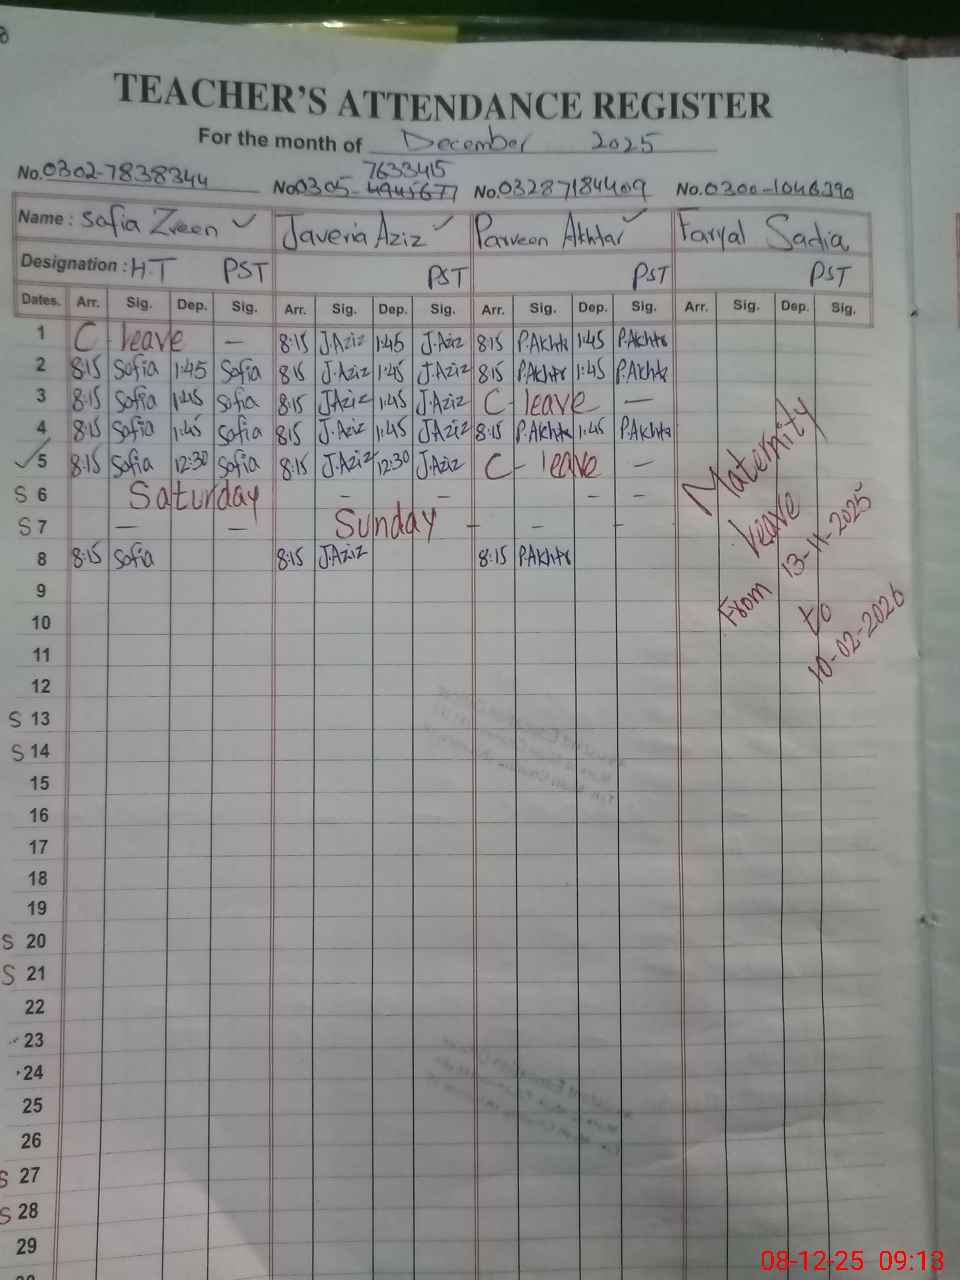 TEACHER'S ATTENDANCE REGISTER
For the month of December 2025
7633415
No. 0302-7838344 No 0305-4945677 No. 03287184409 No. 0300-1046790
Name : Sofia Zreen ✓ Javeria Aziz ✓ Parveen Akhtar ✓ Faryal Sadia
Designation : H.T PST PST PST PST
Dates. Arr. Sig. Dep. Sig. Arr. Sig. Dep. Sig. Arr. Sig. Dep. Sig. Arr. Sig. Dep. Sig.
1 C leave — 8:15 J.Aziz 1:45 J.Aziz 8:15 P.Akhtr 1:45 P.Akhtr
2 8:15 Sofia 1:45 Sofia 8:15 J.Aziz 1:45 J.Aziz 8:15 P.Akhtr 1:45 P.Akhtr
3 8:15 Sofia 1:45 Sofia 8:15 J.Aziz 1:45 J.Aziz C- leave —
4 8:15 Sofia 1:45 Sofia 8:15 J.Aziz 1:45 J.Aziz 8:15 P.Akhtr 1:45 P.Akhtr
✓5 8:15 Sofia 12:30 Sofia 8:15 J.Aziz 12:30 J.Aziz C- leave —
S 6 Saturday - - - -
S 7 — — Sunday - - -
8 8:15 Sofia 8:15 J.Aziz 8:15 P.Akhtr
Maternity
leave
From 13-11-2025
to
10-02-2026
9
10
11
12
S 13
S 14
15
16
17
18
19
S 20
S 21
22
23
24
25
26
S 27
S 28
29
08-12-25 09:13